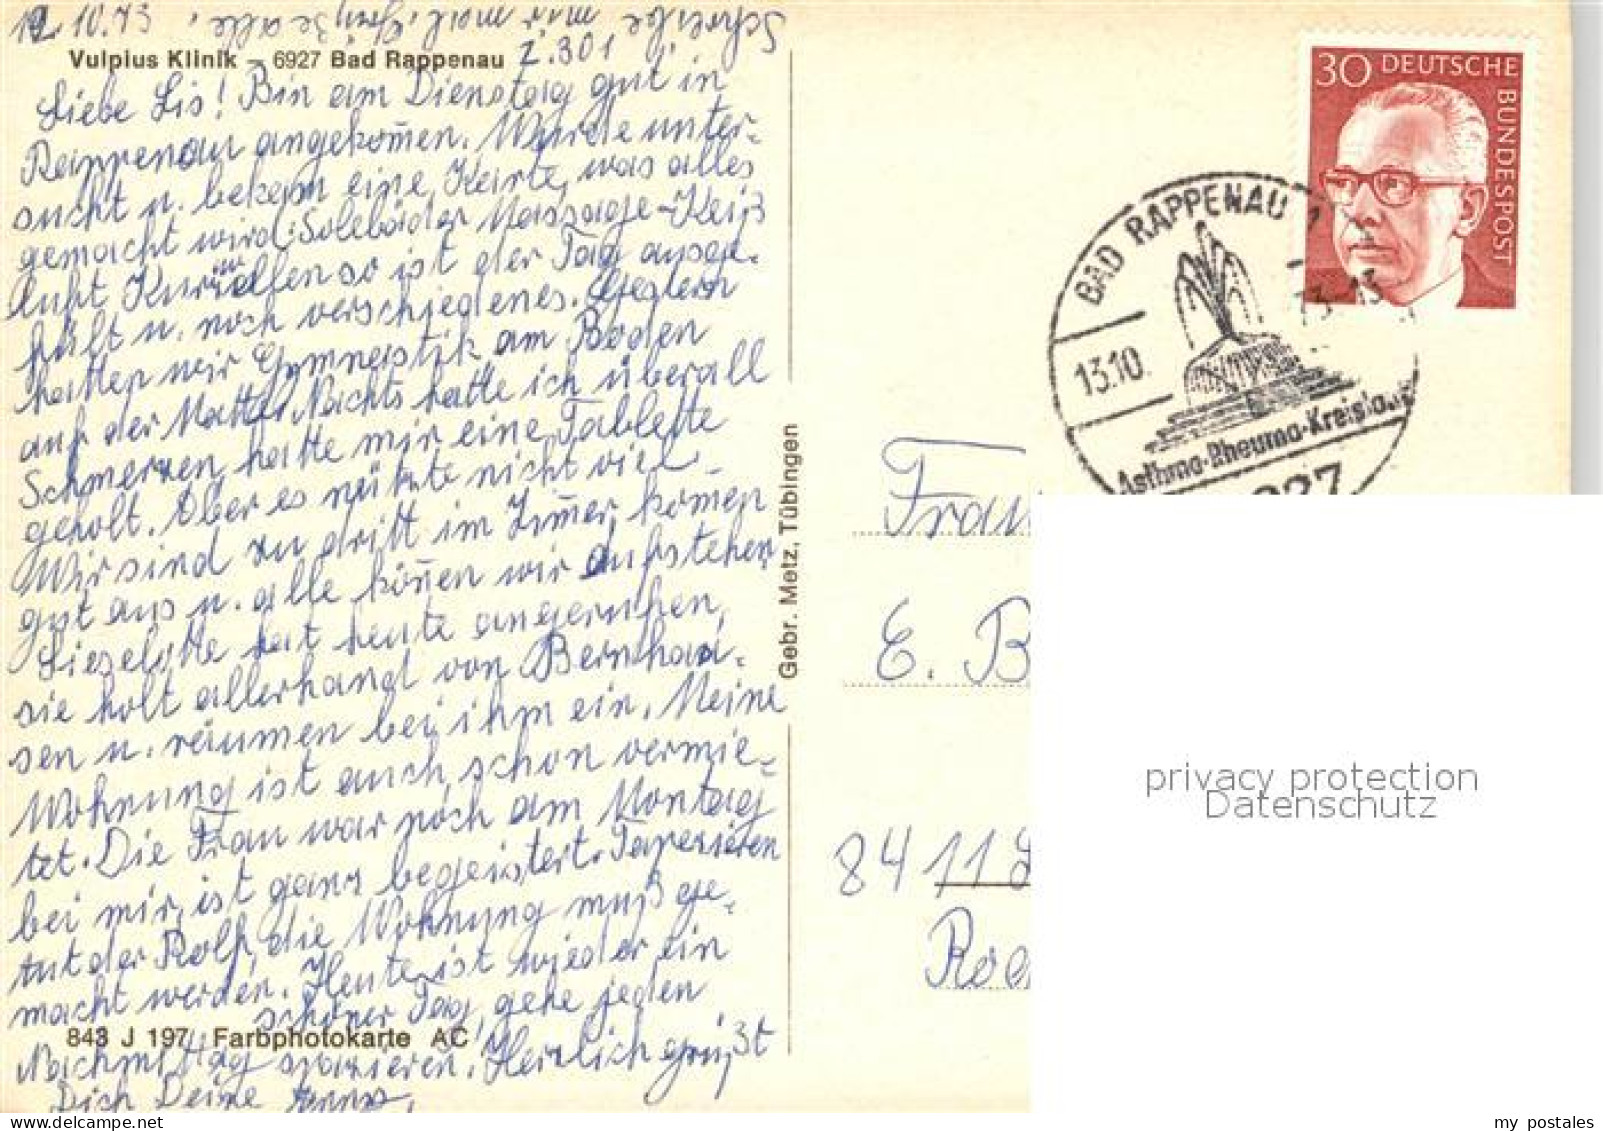 12.10.73
Schreibe mir mal, Grüße alle,
Z. 301
Vulpius Klinik – 6927 Bad Rappenau
Liebe Lis! Bin am Dienstag gut in
Rappenau angekom̅en. Wurde unter-
sucht u. bekam eine Karte, was alles
gemacht wird: Solebäder Massage-Heiß
luft Kur im so ist der Tag ausge-
füllt u. noch verschiedenes. Gestern
hatten wir Gymnastik am Boden
auf der Matte. Nachts hatte ich überall
Schmerzen, hatte mir eine Tablette
geholt. Aber es nützte nicht viel.
Wir sind zu dritt im Zim̅er, kom̅en
gut aus u. alle kön̅en wir aufstehen
Lieselotte hat heute angerufen,
sie holt allerhand von Bernhau-
sen u. räumen bei ihm ein. Meine
Wohnung ist auch schon vermie-
tet. Die Frau war noch am Montag
bei mir, ist ganz begeistert. Tapezieren
tut der Rolf, die Wohnung muß ge-
macht werden. Heute ist wieder ein
schöner Tag, gehe jeden
843 J 197 Farbphotokarte AC
Nachmittag spazieren. Herzlich grüßt
Dich Deine
Gebr. Metz, Tübingen
30 DEUTSCHE
BUNDESPOST
BAD RAPPENAU 1
13.10.
73-13
Asthma-Rheuma-Kreislauf
6927
Frau
E. B
8411
privacy protection
Datenschutz
my postales